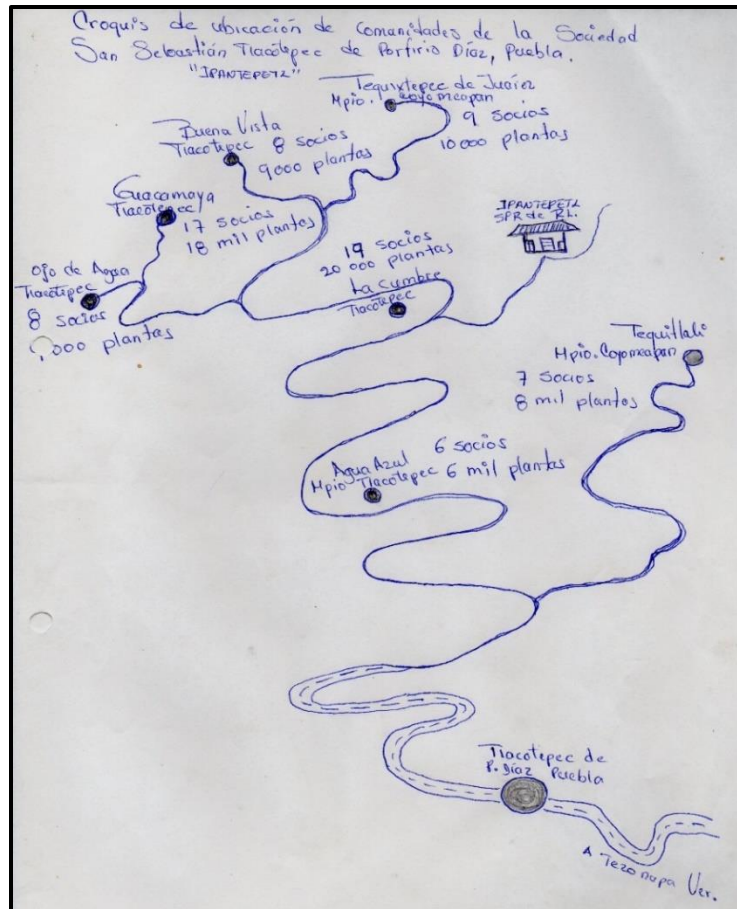 Croquis de ubicación de Comunidades de la Sociedad
San Sebastián Tlacotepec de Porfirio Díaz, Puebla.
"IPANTEPETL"
Tequixtepec de Juárez
Mpio. Coyomeapan
9 socios
10000 plantas
Buena Vista
Tlacotepec 8 socios
9000 plantas
Guacamaya
Tlacotepec
17 socios
18 mil plantas
IPANTEPETL
SPR de RL.
19 socios
20000 plantas
La Cumbre
Tlacotepec
Ojo de Agua
Tlacotepec
8 socios
000 plantas
Tequitlali
Mpio. Coyomeapan
7 socios
8 mil plantas
Agua Azul 6 socios
Mpio Tlacotepec 6 mil plantas
Tlacotepec de
P. Díaz Puebla
A Tezonapa Ver.